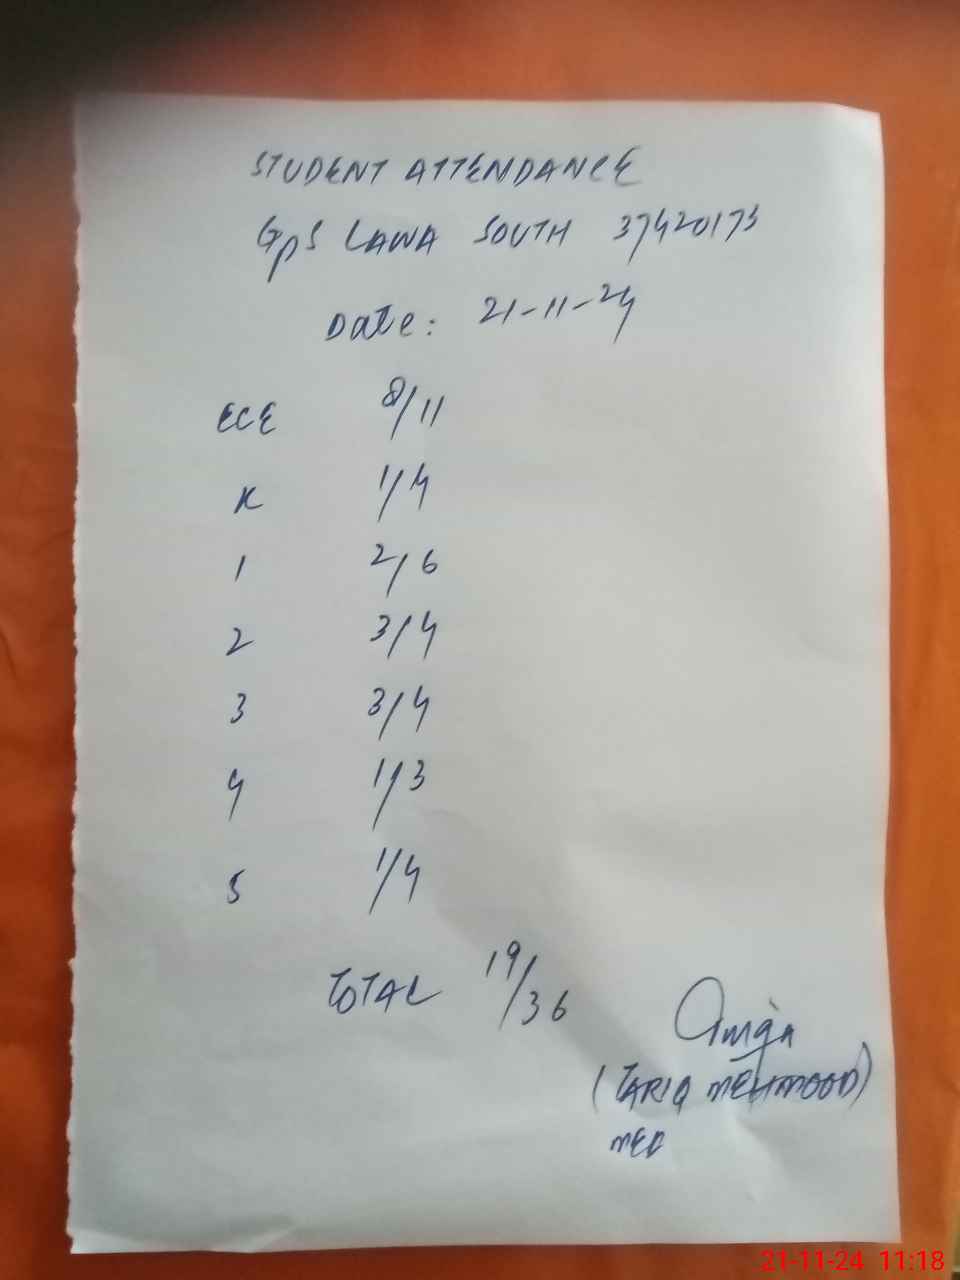 STUDENT ATTENDANCE
GPS LAWA SOUTH 37420173
Date: 21-11-24
ECE 8/11
K 1/4
1 2/6
2 3/4
3 3/4
4 1/3
5 1/4
TOTAL 19/36
(TARIQ MEHMOOD)
21-11-24 11:18